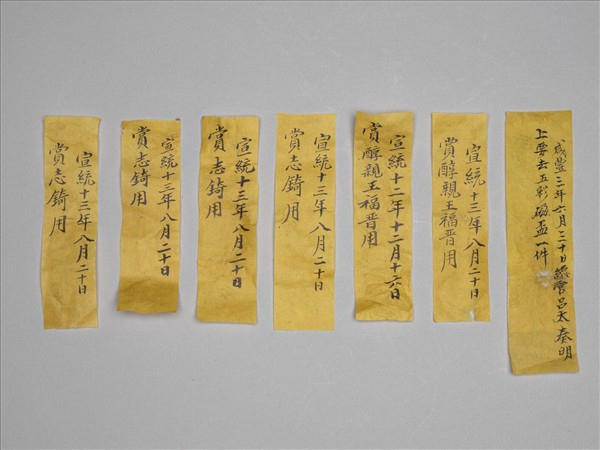 咸豐二年六月三十日總管呂奏明
上要去五彩磁盃一件
宣統十三年八月二十日
賞醇親王福晋用
宣統十二年十二月十六日
賞醇親王福晋用
宣統十三年八月二十日
賞志錡用
宣統十三年八月二十日
賞志錡用
宣統十三年八月二十日
賞志錡用
宣統十三年八月二十日
賞志錡用